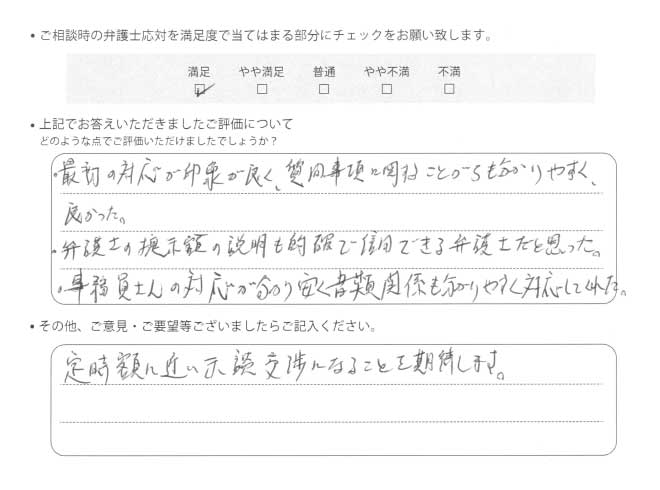 • ご相談時の弁護士応対を満足度で当てはまる部分にチェックをお願い致します。
満足 やや満足 普通 やや不満 不満
☑ □ □ □ □
• 上記でお答えいただきましたご評価について
どのような点でご評価いただけましたでしょうか？
・最初の対応が印象が良く、質問事項に関することがらも分かりやすく、
良かった。
・弁護士の提示額の説明も的確で信用できる弁護士だと思った。
・事務員さんの対応が分かり安く書類関係も分かりやすく対応してくれた。
• その他、ご意見・ご要望等ございましたらご記入ください。
定時額に近い示談交渉になることを期待します。